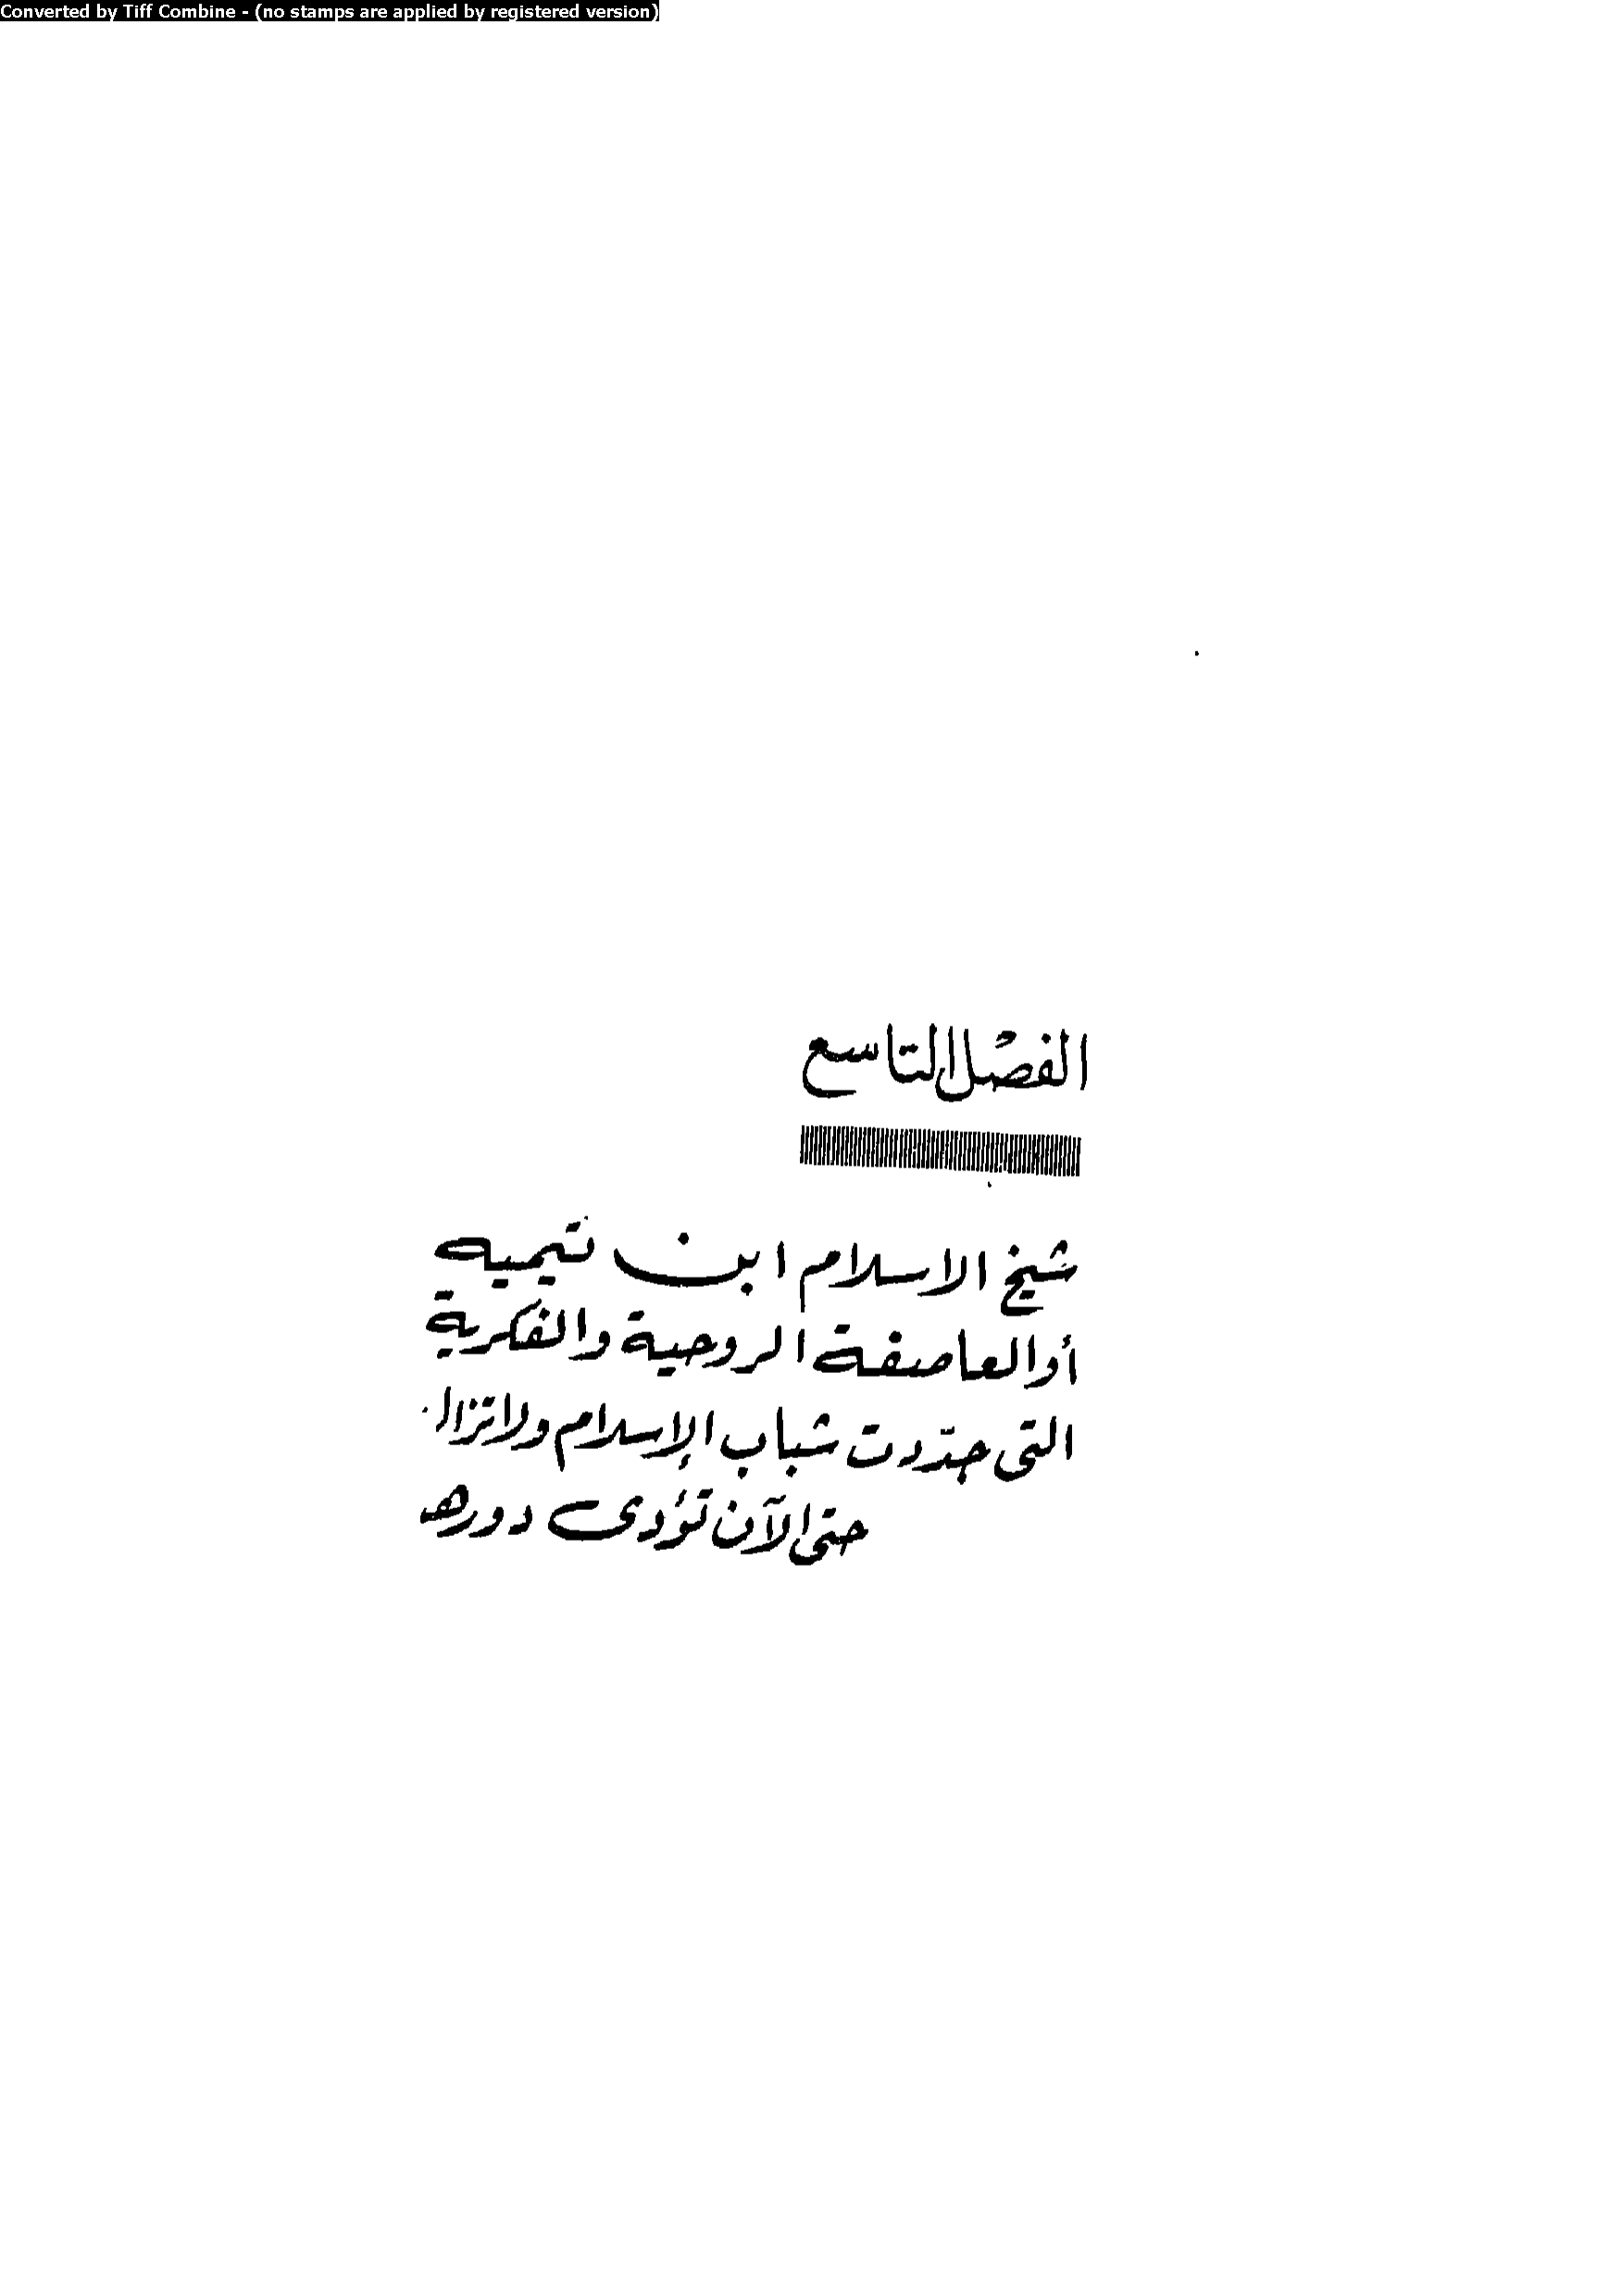 Converted by Tiff Combine - (no stamps are applied by registered version)
الفصل التاسع
شيخ الاسلام ابن تيميه
أو العاصفة الروحية والفكرية
التى جدّدت شباب الإسلام ولا تزال
حتى الآن تؤدى دورها